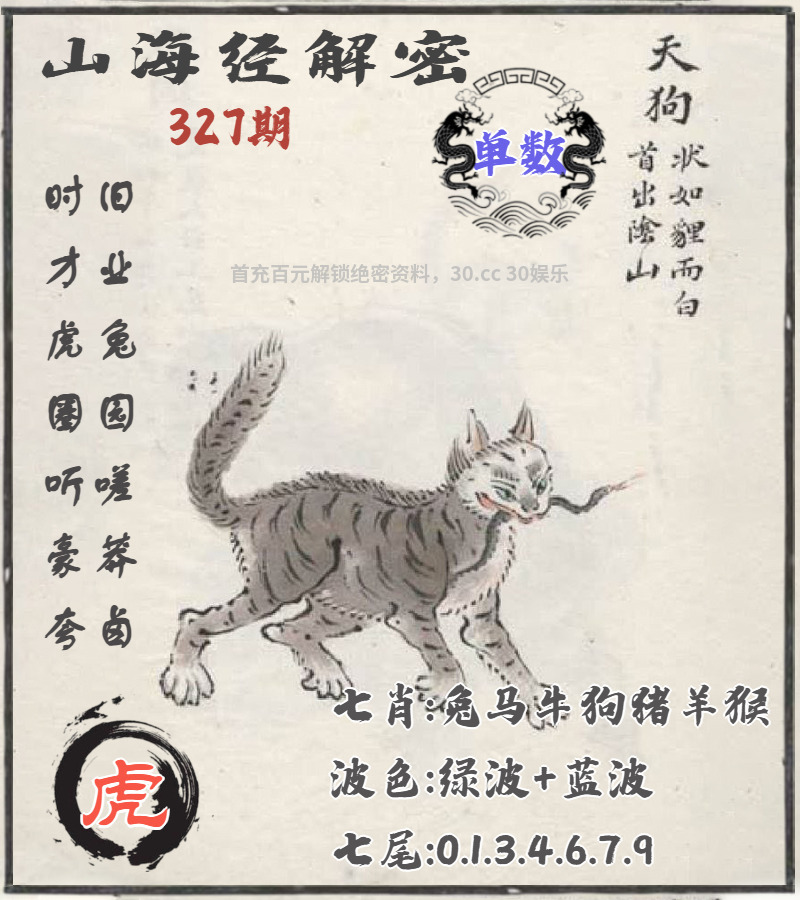 山海经解密
327期
单数
天狗
状如貍而白
首出陰山
首充百元解锁绝密资料，30.cc 30娱乐
旧业兔园嗟莽卤
时才虎圈听豪夸
七肖:兔马牛狗猪羊猴
波色:绿波+蓝波
七尾:0.1.3.4.6.7.9
虎